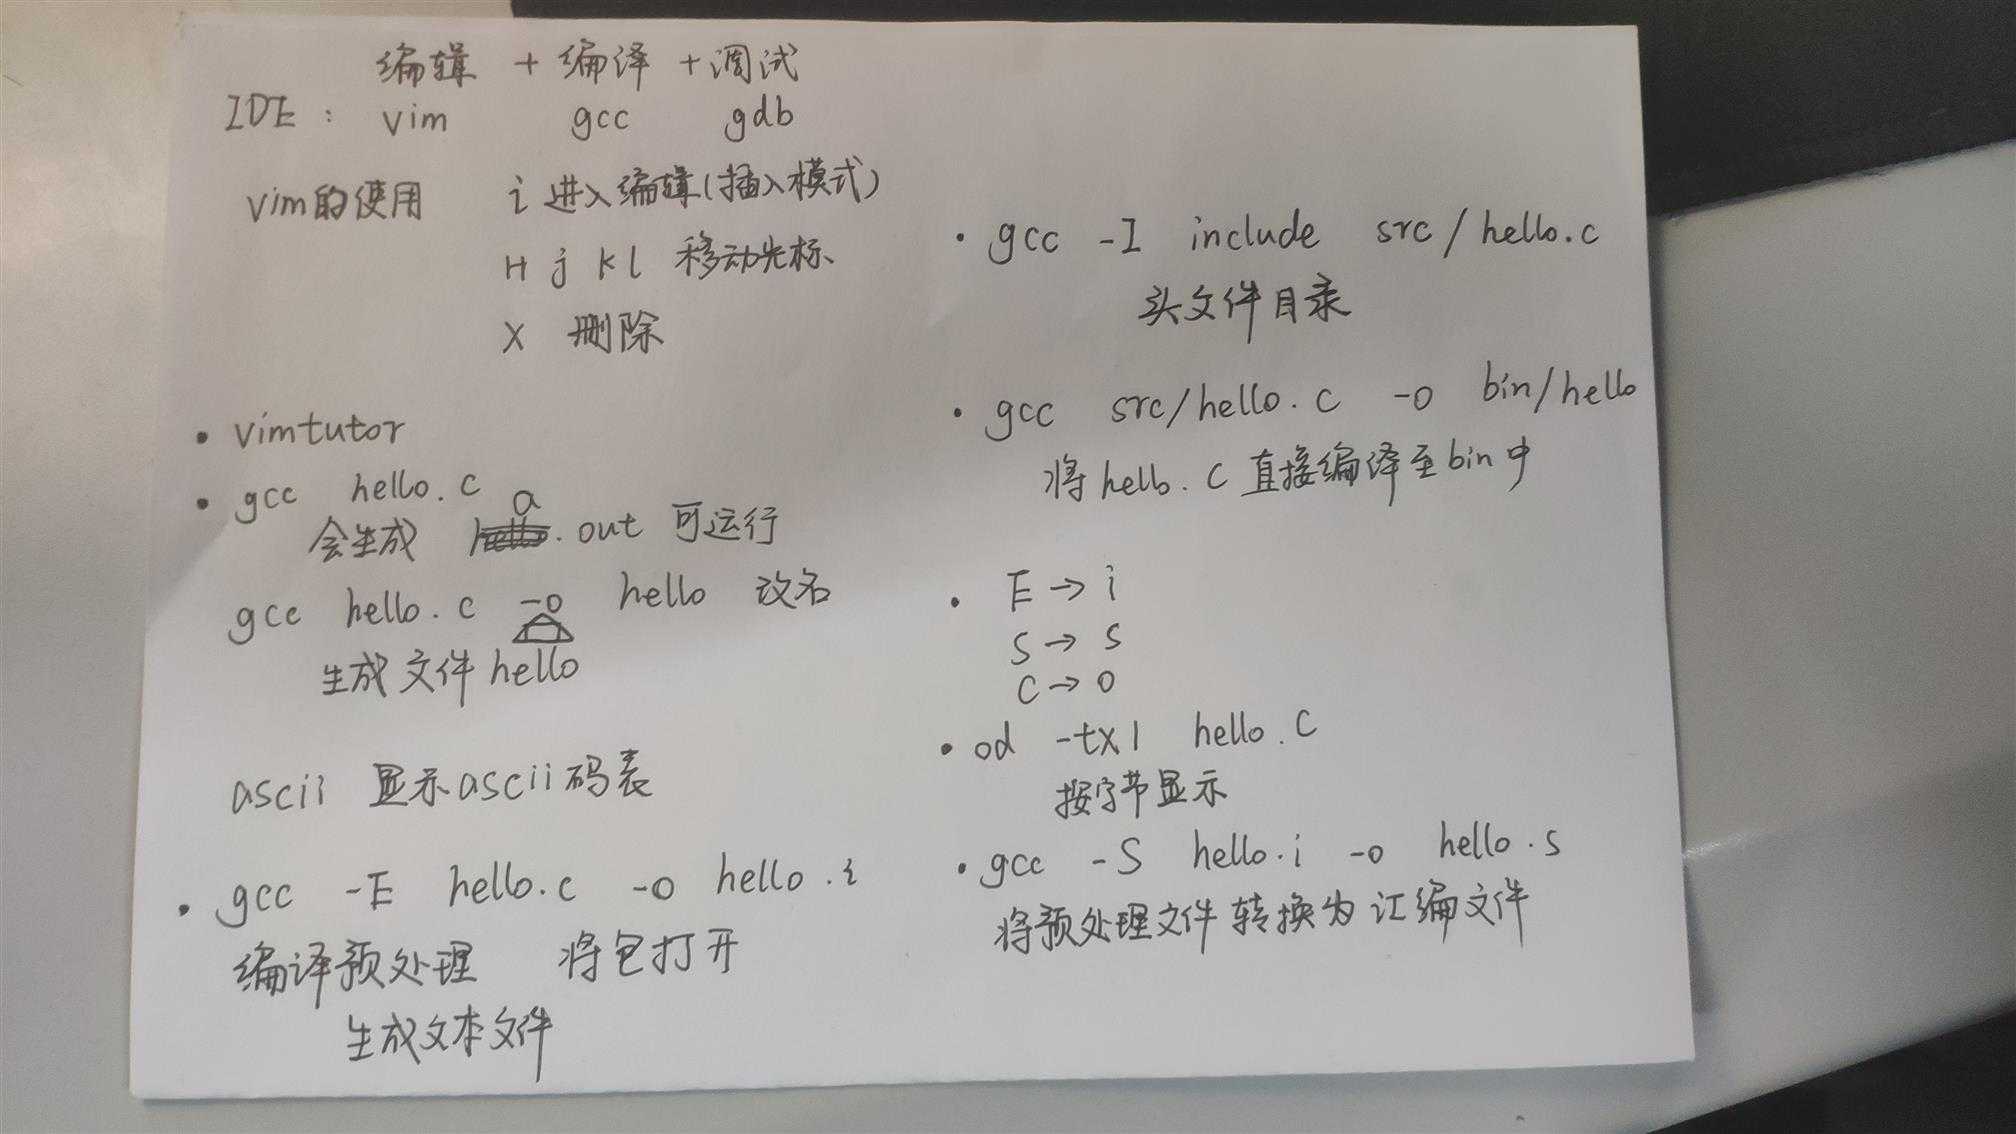 编辑 + 编译 + 调试
IDE : vim gcc gdb
vim的使用 i 进入编辑(插入模式)
H j k l 移动光标
X 删除
• vimtutor
• gcc hello.c
会生成 a.out 可运行
gcc hello.c -o hello 改名
生成文件hello
ascii 显示ascii码表
• gcc -E hello.c -o hello.i
编译预处理 将包打开
生成文本文件
• gcc -I include src/hello.c
头文件目录
• gcc src/hello.c -o bin/hello
将hello.c直接编译至bin中
• E→i
S→s
C→o
• od -tx1 hello.c
按字节显示
• gcc -S hello.i -o hello.s
将预处理文件转换为汇编文件